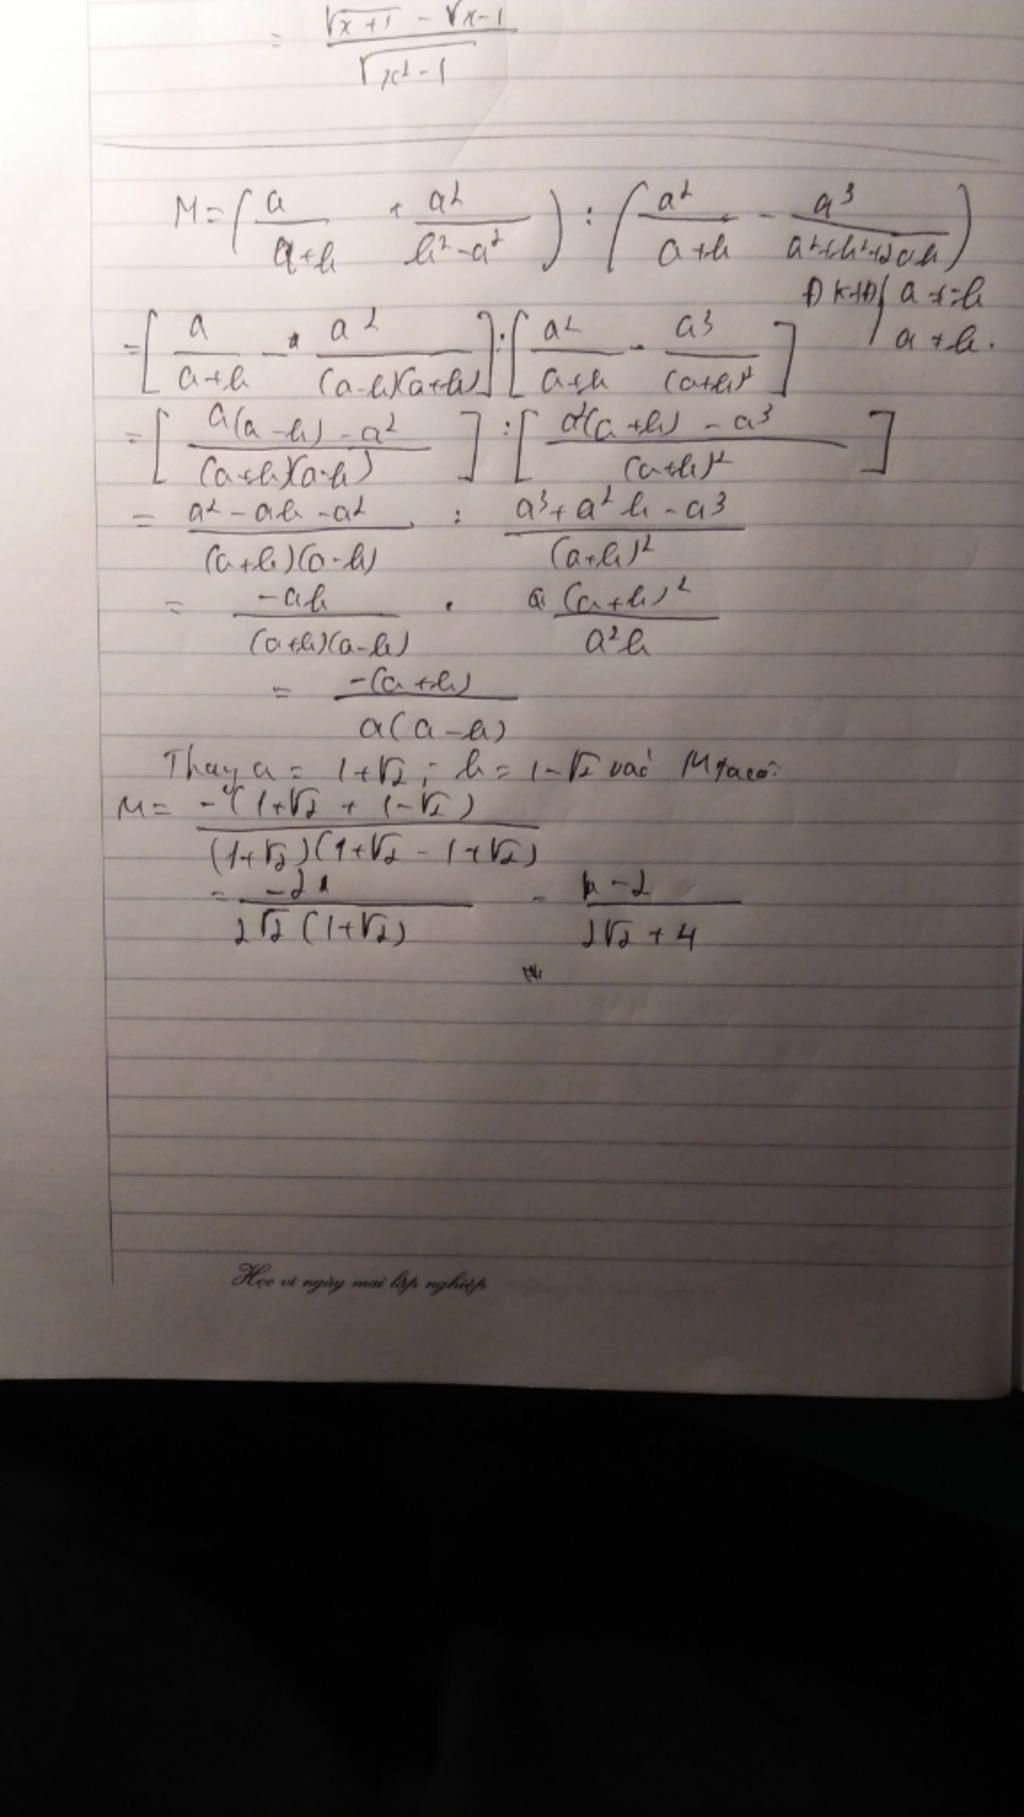 = (√(x+1) - √(x-1)) / √(x²-1)
M = ( a/(a+b) + a²/(b²-a²) ) : ( a²/(a+b) - a³/(a²+b²+2ab) )
ĐKXĐ { a ≠ -b
= [ a/(a+b) - a²/((a-b)(a+b)) ] : [ a²/(a+b) - a³/(a+b)² ]
a ≠ b.
= [ (a(a-b) - a²)/((a+b)(a-b)) ] : [ (a²(a+b) - a³)/(a+b)² ]
= (a² - ab - a²)/((a+b)(a-b)) : (a³ + a²b - a³)/(a+b)²
= -ab/((a+b)(a-b)) . (a+b)²/(a²b)
= -(a+b)/(a(a-b))
Thay a = 1+√2 ; b = 1-√2 vào M ta có:
M = -(1+√2 + 1-√2)/((1+√2)(1+√2 - 1+√2))
= -2/(2√2(1+√2)) = -2/(2√2 + 4)
Học vì ngày mai lập nghiệp